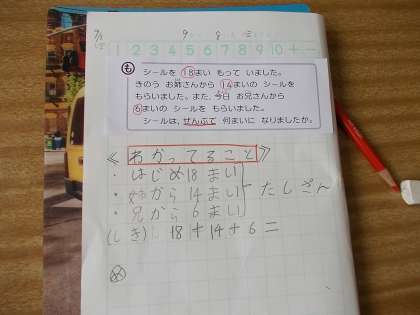 1 2 3 4 5 6 7 8 9 10 + −
も
シールを 18まい もって いました。
きのう お姉さんから 14まいの シールを
もらいました。また、今日 お兄さんから
6まいの シールを もらいました。
シールは、ぜんぶで 何まいに なりましたか。
《わかってること》
・はじめ18まい
・姉から 14まい
・兄から 6まい
たしざん
(しき) 18+14+6=
め